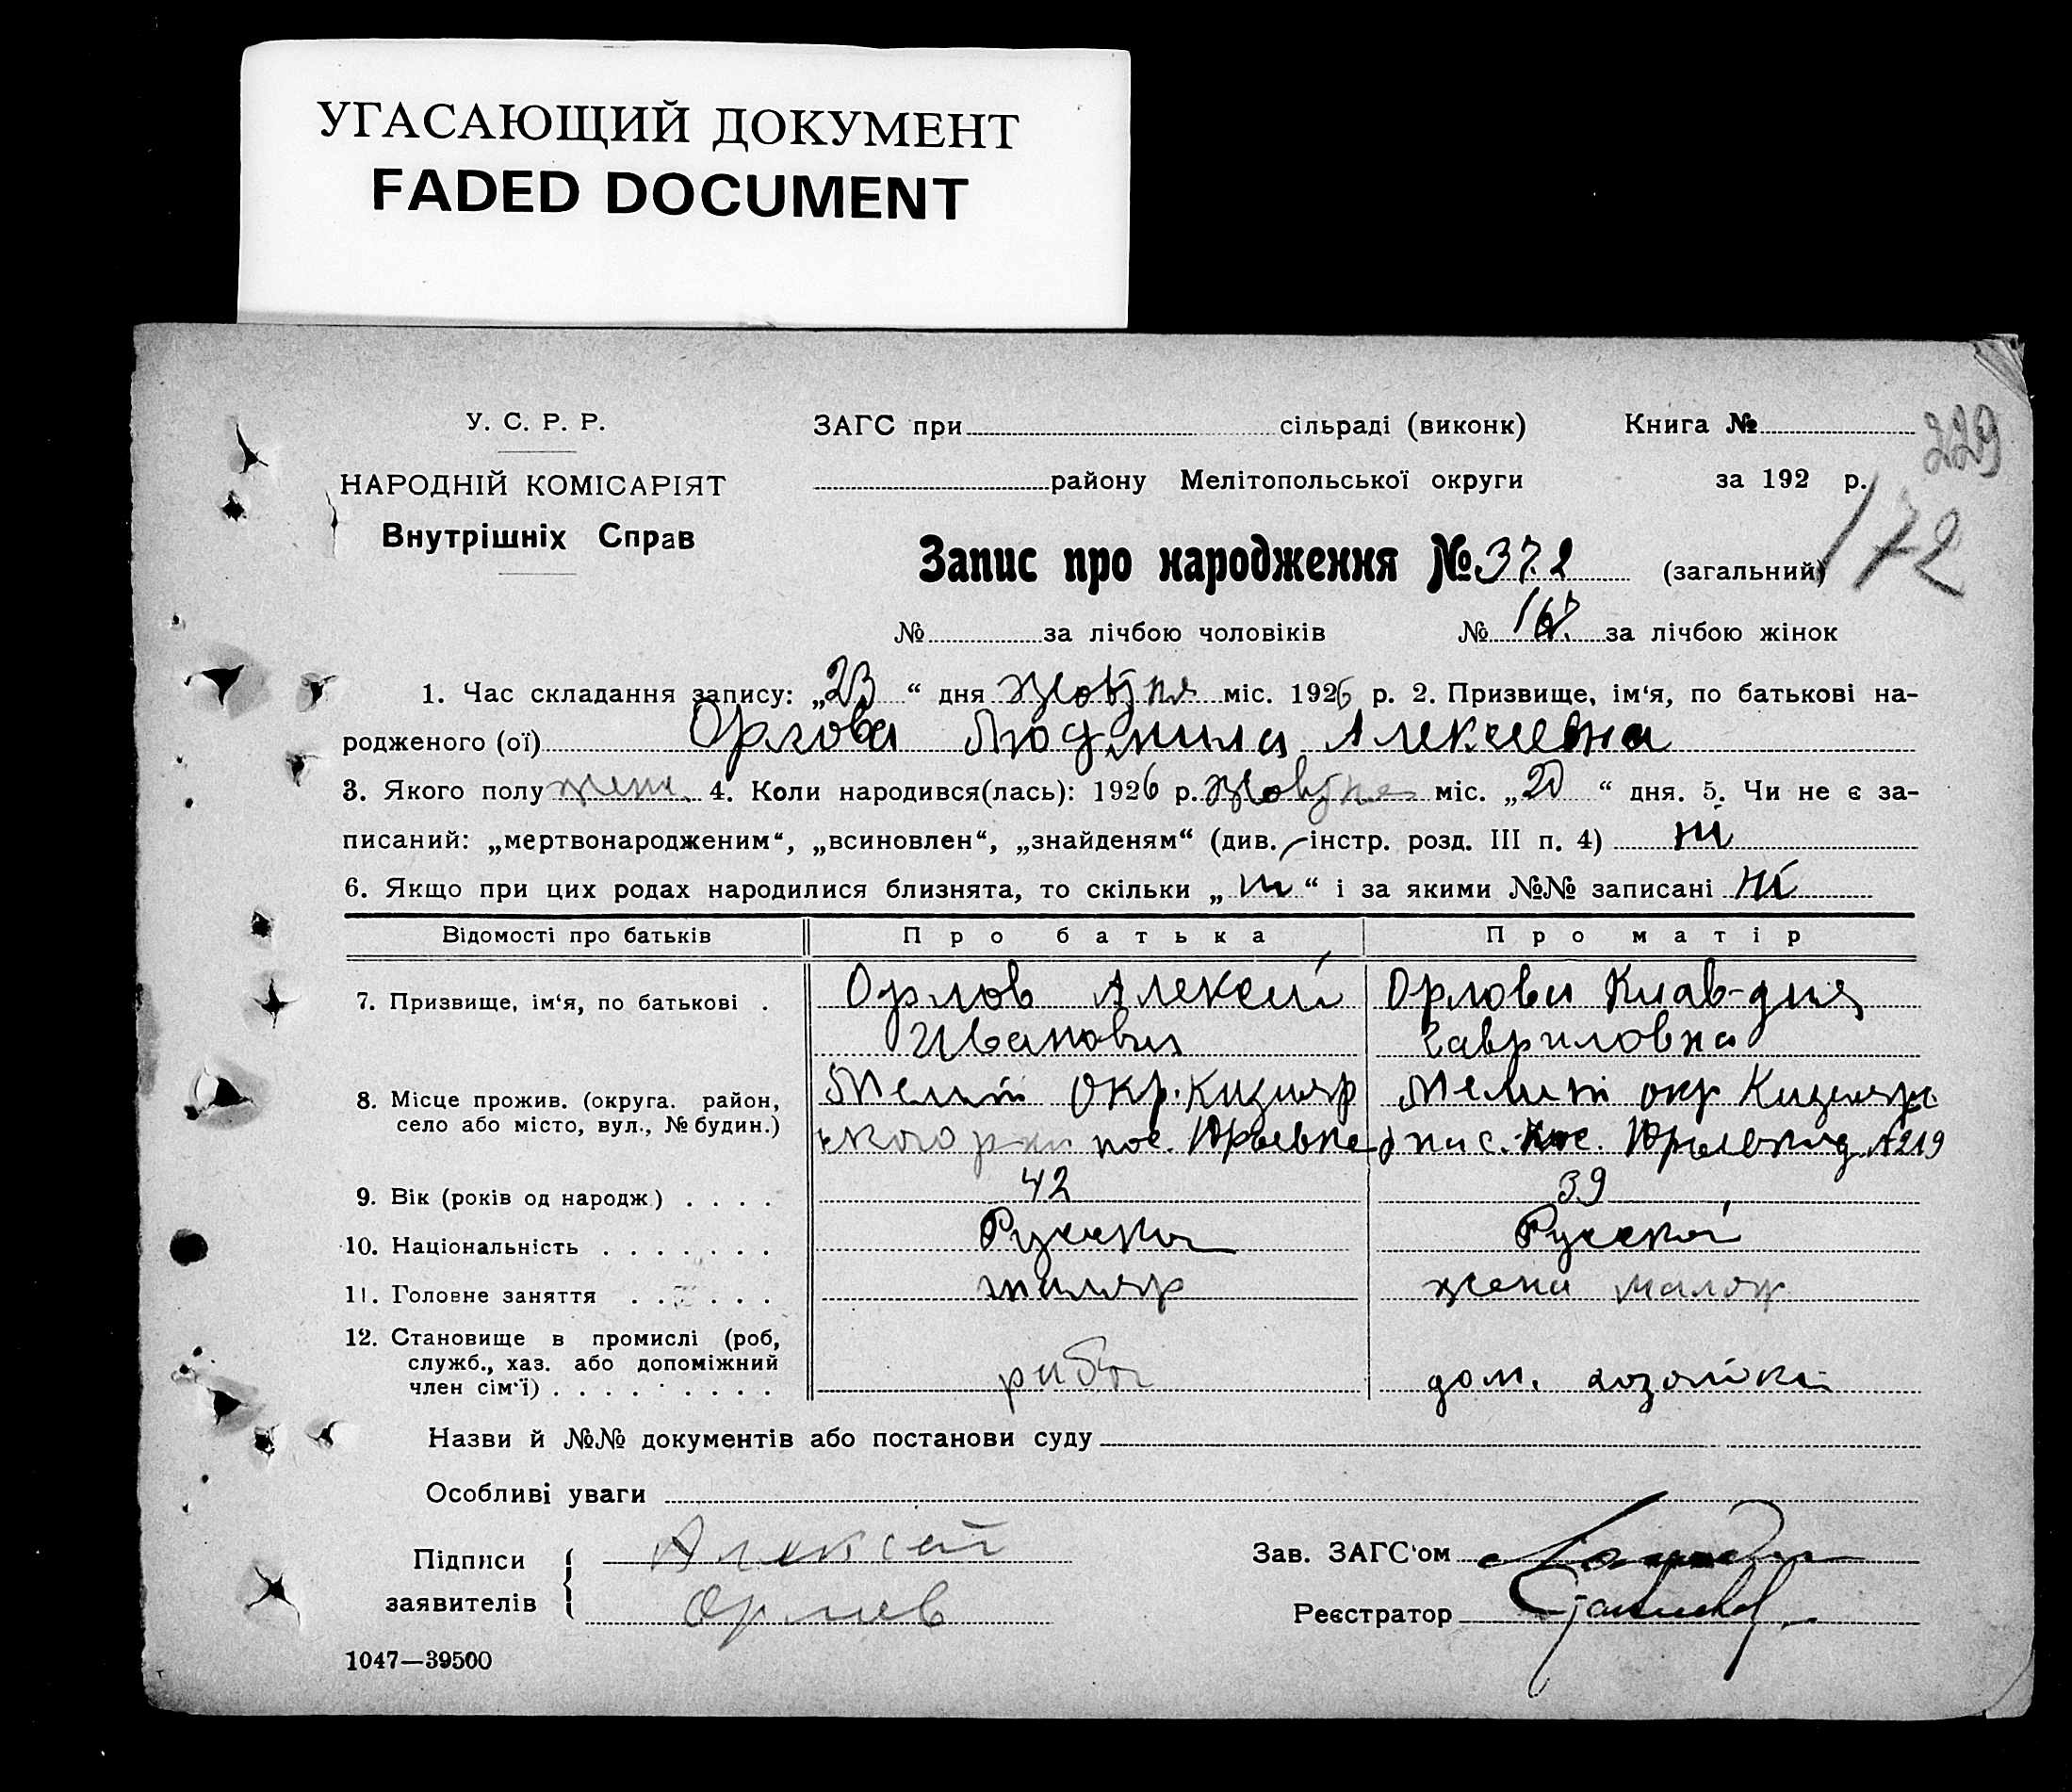 УГАСАЮЩИЙ ДОКУМЕНТ
FADED DOCUMENT
У. С. Р. Р.
НАРОДНІЙ КОМІСАРІЯТ
Внутрішніх Справ
ЗАГС при сільраді (виконк)
Книга №
229
району Мелітопольської округи
за 192 р.
172
Запис про народження № 372 (загальний)
№ за лічбою чоловіків № за лічбою жінок
1. Час складання запису: „23“ дня жовтня міс. 1926 р. 2. Призвище, ім‘я, по батькові на-
родженого (ої) Орлова Людмила Алексеевна
3. Якого полу жен. 4. Коли народився(лась): 1926 р. жовтня міс. „20“ дня. 5. Чи не є за-
писаний: „мертвонародженим“, „всиновлен“, „знайденям“ (див. інстр. розд. III п. 4) ні
6. Якщо при цих родах народилися близнята, то скільки „ні“ і за якими №№ записані ні
Відомості про батьків
Про батька
Про матір
7. Призвище, ім‘я, по батькові .
Орлов Алексей
Иванович
Орлова Клав-дия
Гавриловна
8. Місце прожив. (округа. район,
село або місто, вул., № будин.)
Мелит Окр. Кизияр
ского рна пос. Юрьевке
Мелит окр Кизиярс.
пос. Юрьевка д №219
9. Вік (років од народж) . . . .
42
39
10. Національність . . . . . . .
Русский
Русской
11. Головне заняття . . . . . .
маляр
жена маляр
12. Становище в промислі (роб,
служб., хаз. або допоміжний
член сім‘ї) . . . . . . . . . .
рабоч
дом. хозяйка
Назви й №№ документів або постанови суду
Особливі уваги
Підписи
заявителів
Алексей
Орлов
Зав. ЗАГС‘ом
Реєстратор
1047—39500